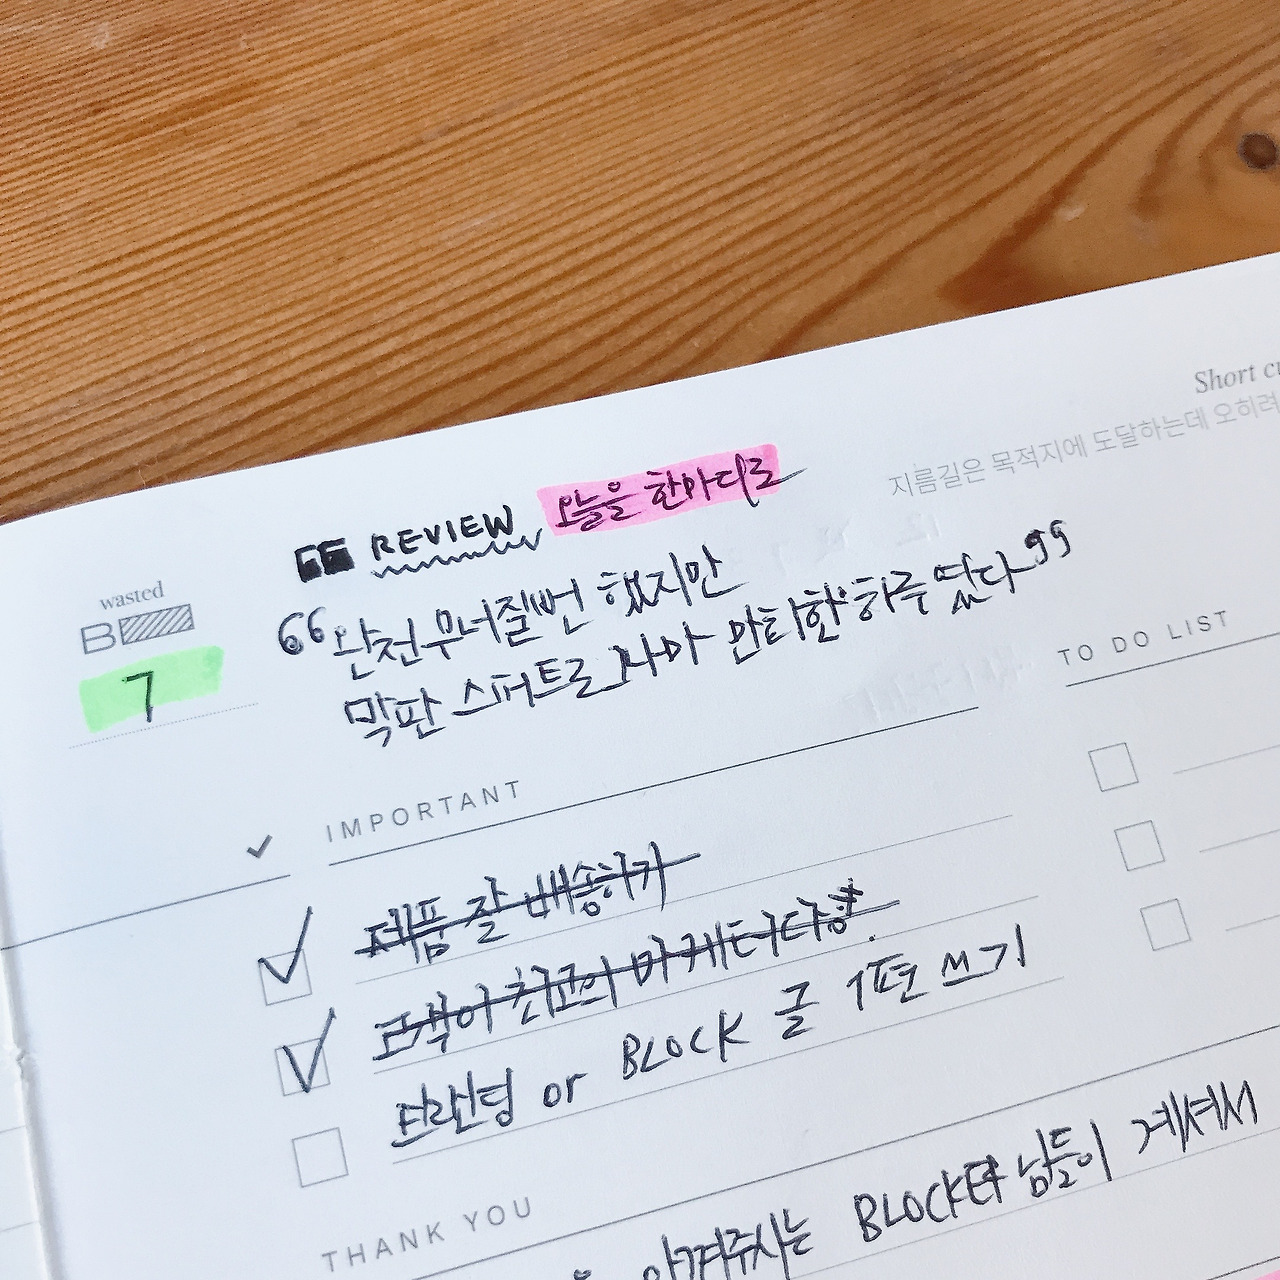 Short
지름길은 목적지에 도달하는데 오히려
REVIEW 오늘을 한마디로
wasted
B
7
“완전 무너질뻔 했지만
막판 스퍼트로 그나마 만회한 하루였다”
TO DO LIST
IMPORTANT
제품 잘 배송하기
고객이 최고의 마케터다
브랜딩 or BLOCK 글 1편 쓰기
THANK YOU
아껴주시는 BLOCK 님들이 계셔서